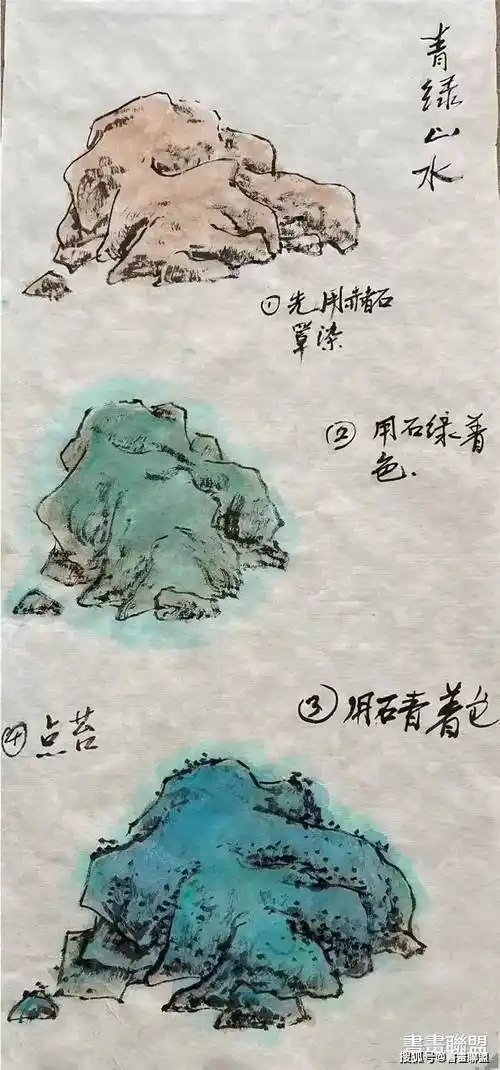 青绿山水
①先用赭石
罩染
②用石绿着
色.
③用石青着色
④点苔
書畫聯盟
搜狐号@書畫聯盟